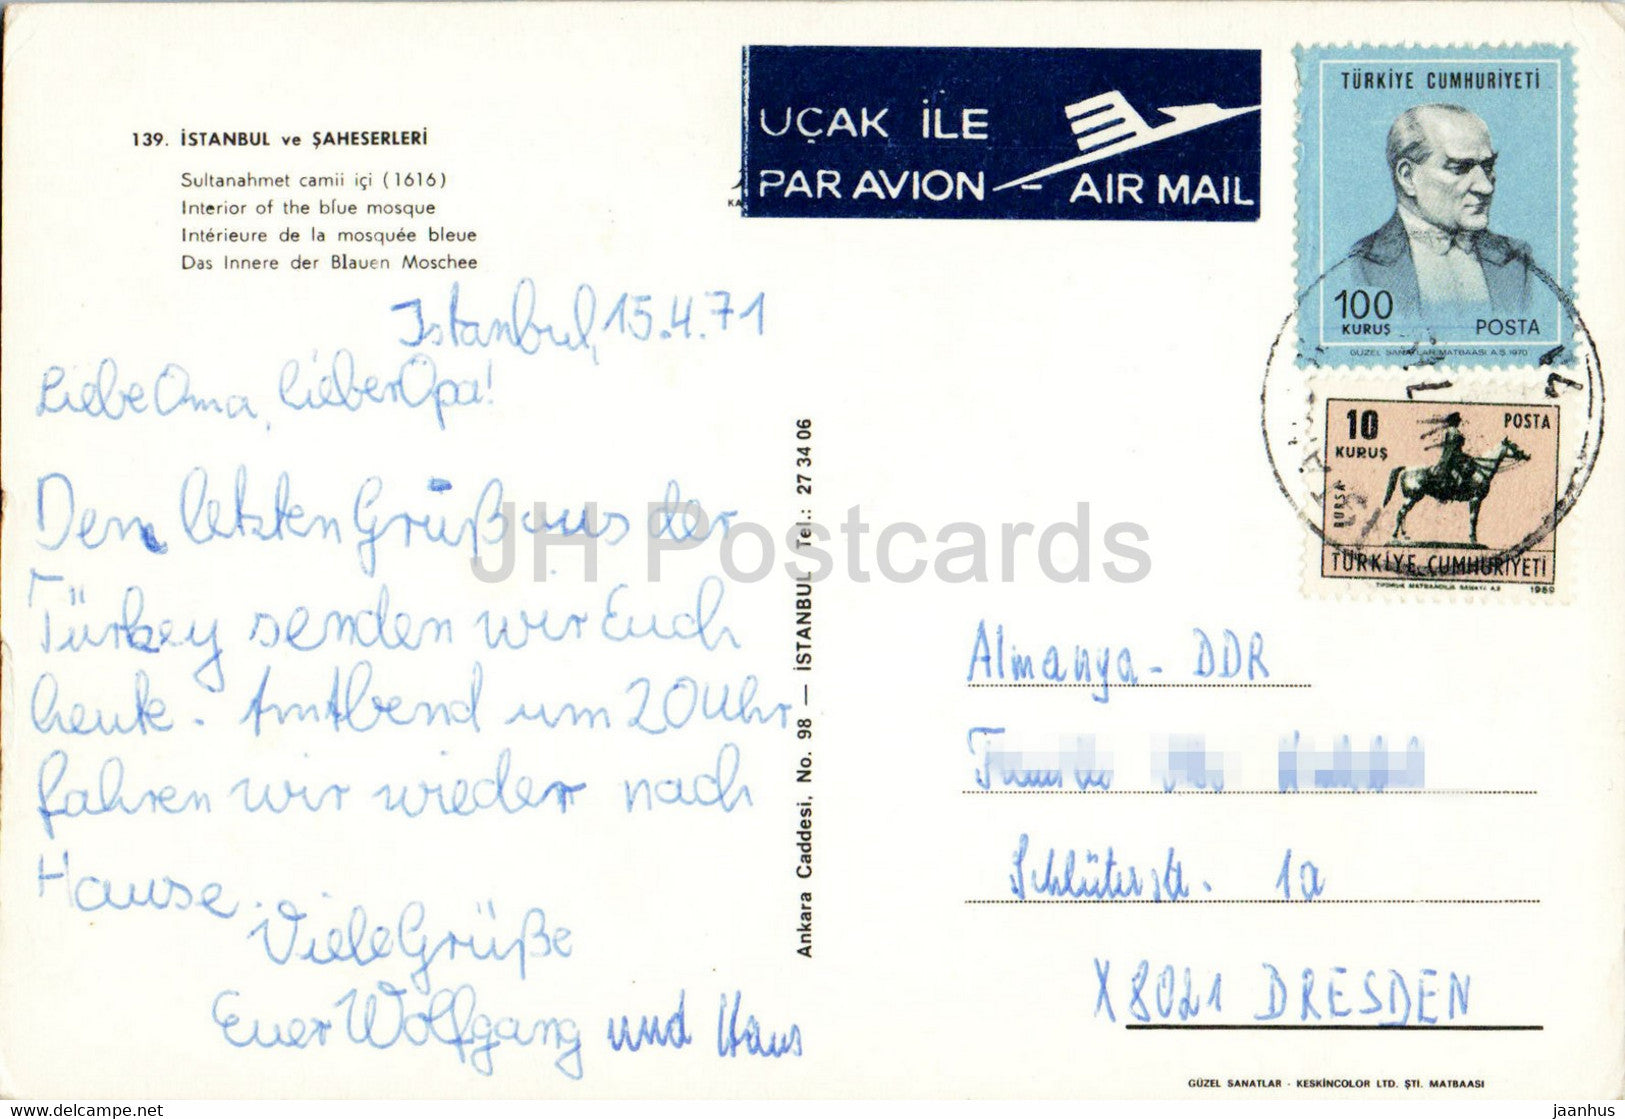 139. İSTANBUL ve ŞAHESERLERİ
Sultanahmet camii içi (1616)
Interior of the blue mosque
Intérieure de la mosquée bleue
Das Innere der Blauen Moschee
UÇAK İLE
PAR AVION - AIR MAIL
TÜRKİYE CUMHURİYETİ
100
KURUŞ
POSTA
GÜZEL SANATLAR MATBAASI A.Ş. 1970
10
KURUŞ
POSTA
BURSA
TÜRKİYE CUMHURİYETİ
1969
Istanbul, 15.4.71
Liebe Oma, lieber Opa!
Den letzten Gruß aus der
Türkey senden wir Euch
heute. Am Abend um 20 Uhr
fahren wir wieder nach
Hause.
Viele Grüße
Euer Wolfgang und Hans
Ankara Caddesi, No. 98 — İSTANBUL Tel.: 27 34 06
Almanya - DDR
Schlüterstr. 1a
X 8021 DRESDEN
GÜZEL SANATLAR - KESKİNCOLOR LTD. ŞTİ. MATBAASI
JH Postcards
www.delcampe.net
jaanhus